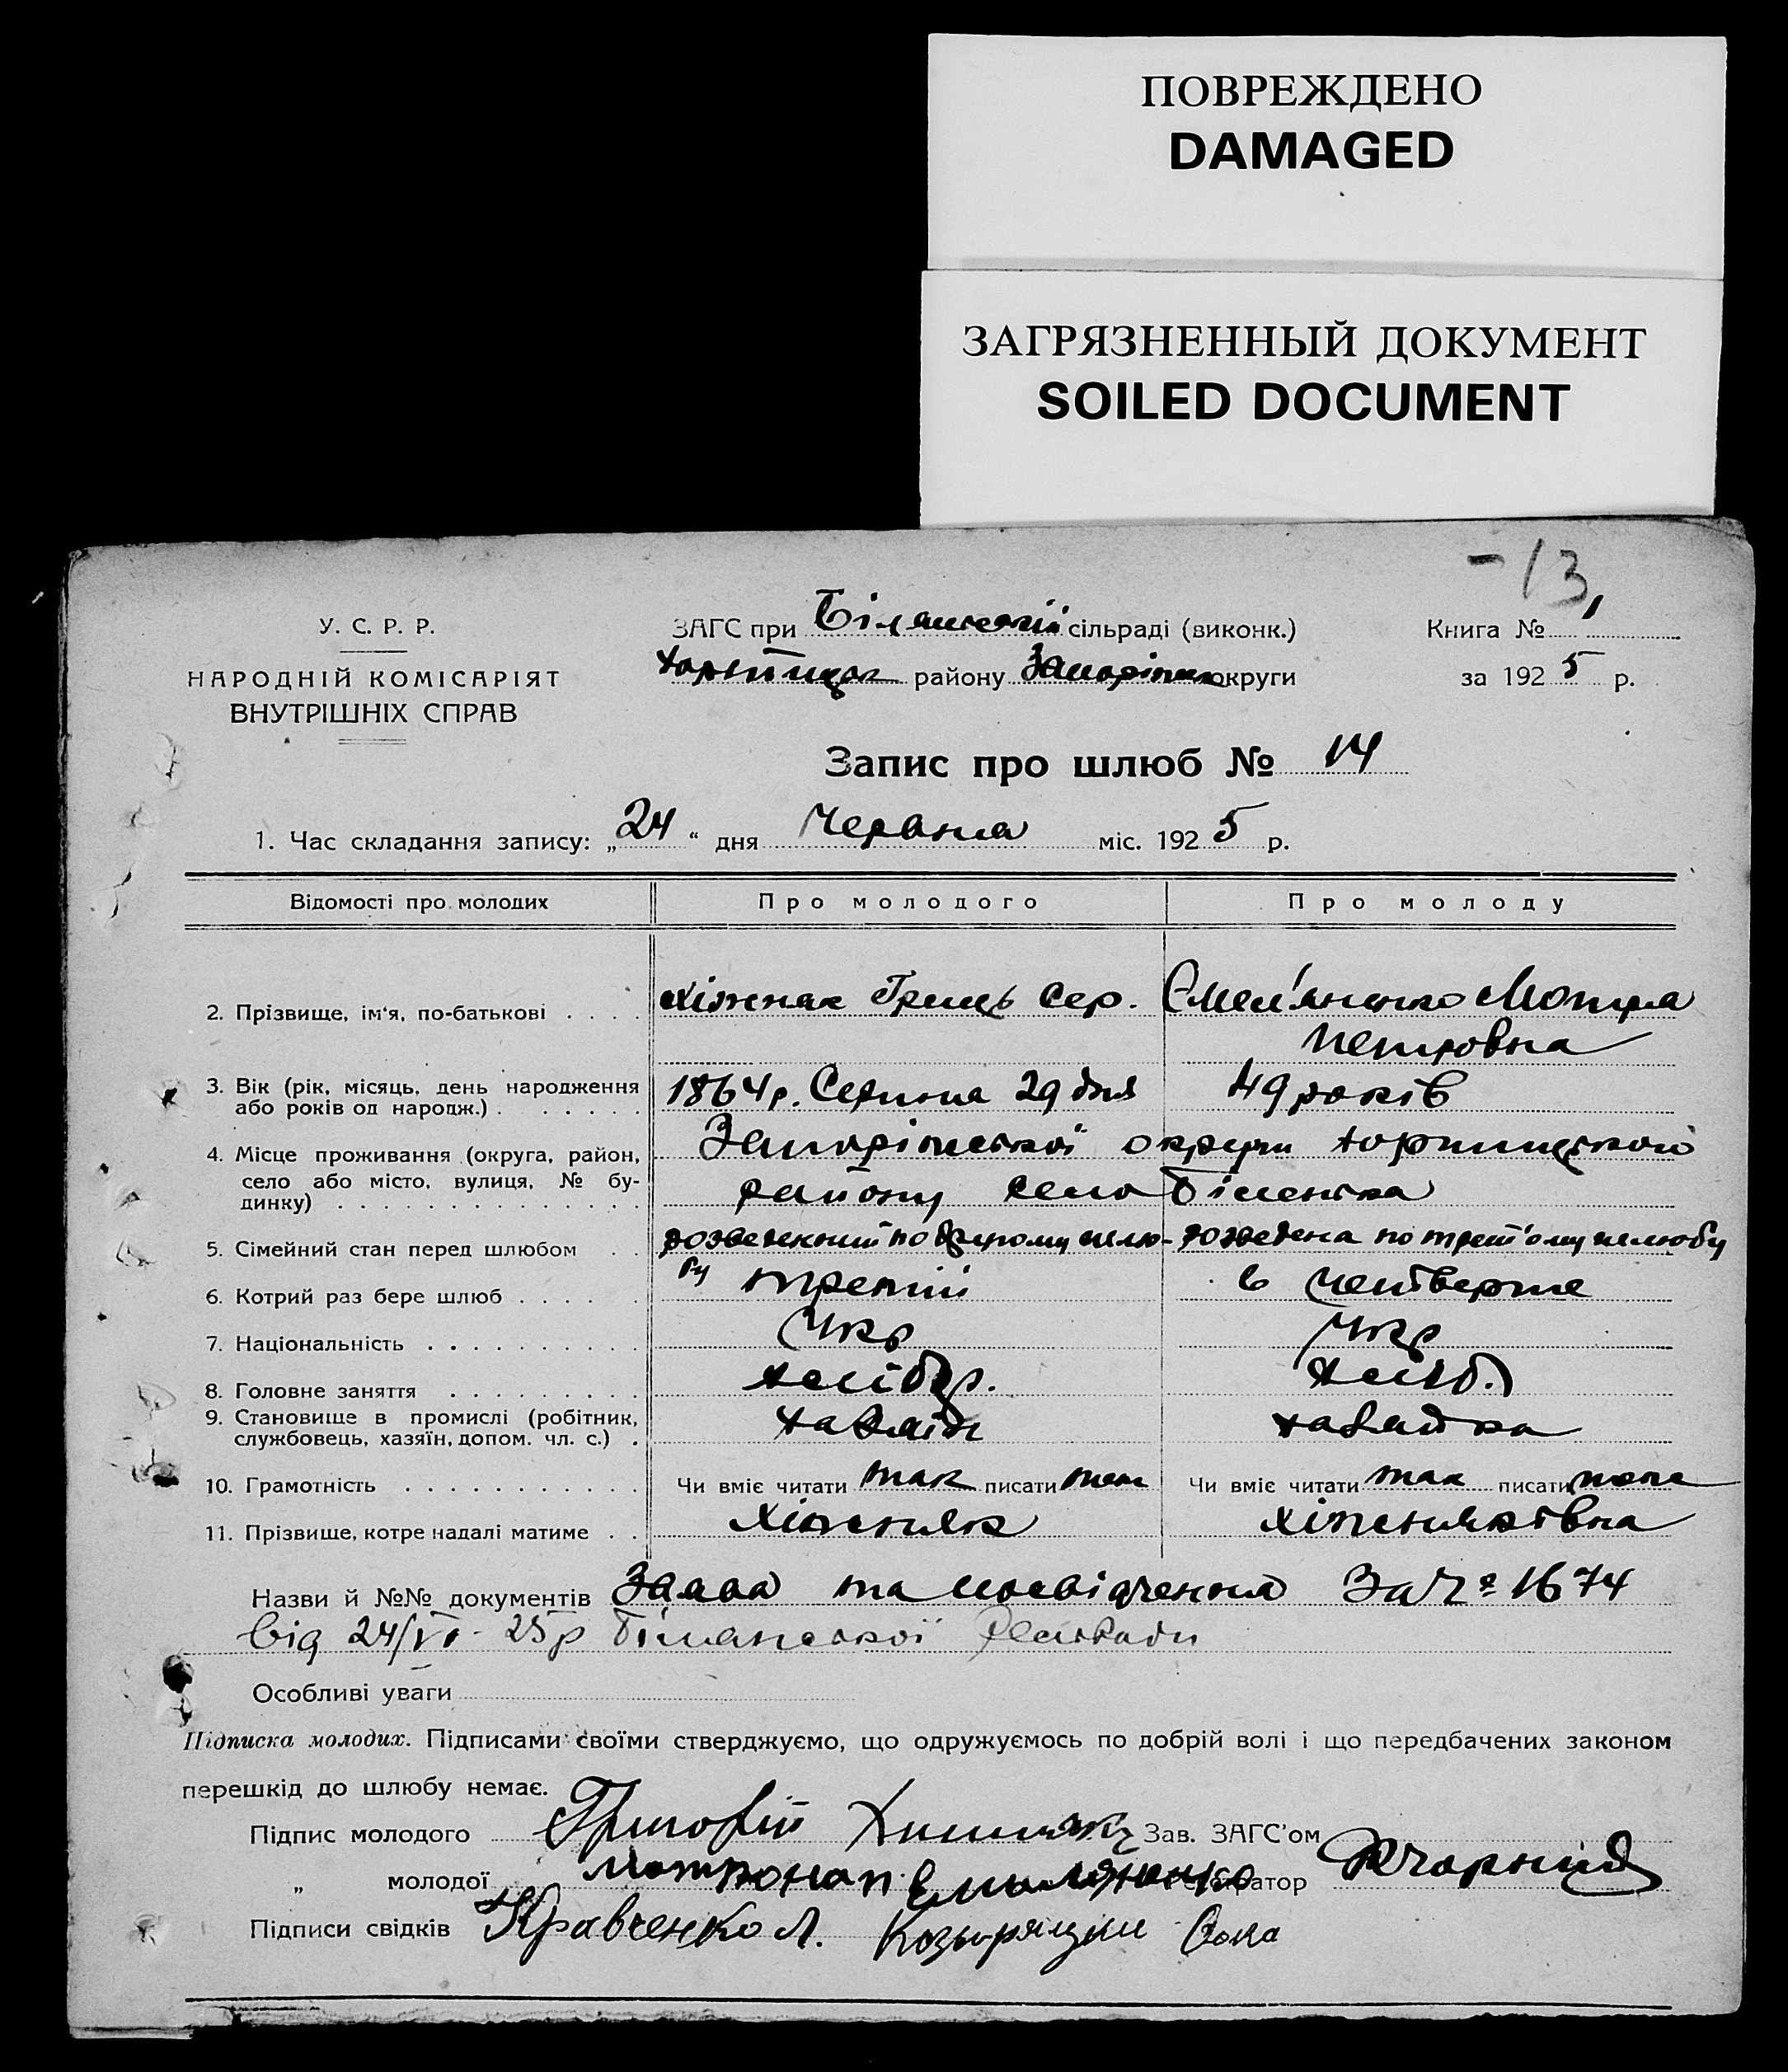 ПОВРЕЖДЕНО
DAMAGED
ЗАГРЯЗНЕННЫЙ ДОКУМЕНТ
SOILED DOCUMENT
-13
У. С. Р. Р.
НАРОДНІЙ КОМІСАРІЯТ
ВНУТРІШНІХ СПРАВ
ЗАГС при Білянській сільраді (виконк.)
району округи
Книга № 1
за 1925 р.
Запис про шлюб № 14
1. Час складання запису: „24“ дня Червня міс. 1925 р.
Відомості про молодих Про молодого Про молоду
2. Прізвище, ім'я, по-батькові Хіжняк Гриць Сер. Омел'яненко Мотря
Петровна
3. Вік (рік, місяць, день народження або років од народж.) 1864 р. Серпня 29 дня 49 років
4. Місце проживання (округа, район, село або місто, вулиця, № будинку) Запоріжської округи Хортицького
району село Біленька
5. Сімейний стан перед шлюбом розведений по другому шлю- розведена по трет'ому шлюбу
бу
6. Котрий раз бере шлюб третій в четверте
7. Національність Укр Укр
8. Головне заняття хлібор. хліб.
9. Становище в промислі (робітник, службовець, хазяїн, допом. чл. с.) хазяїн хазяйка
10. Грамотність Чи вміє читати так писати Чи вміє читати так писати
11. Прізвище, котре надалі матиме Хіжняк Хіжняківна
Назви й №№ документів Заява та посвідчення За № 1674
від 24/VI - 25 р Білянської
Особливі уваги
Підписка молодих. Підписами своїми стверджуємо, що одружуємось по добрій волі і що передбачених законом
перешкід до шлюбу немає.
Підпис молодого Григорій Зав. ЗАГС'ом
„ молодої Матрона П Емельяненко Реєстратор Чорний
Підписи свідків Кравченко Л.